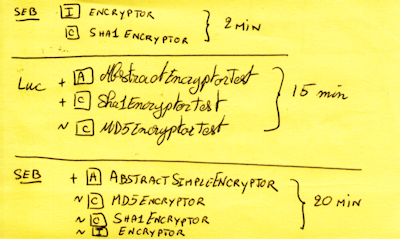 SEB I ENCRYPTOR
C SHA1 ENCRYPTOR
2 MIN
LUC + A AbstractEncryptorTest
+ C Sha1EncryptorTest
~ C MD5EncryptorTest
15 min
SEB + A ABSTRACTSIMPLEENCRYPTOR
~ C MD5ENCRYPTOR
~ C SHA1ENCRYPTOR
~ I ENCRYPTOR
20 MIN